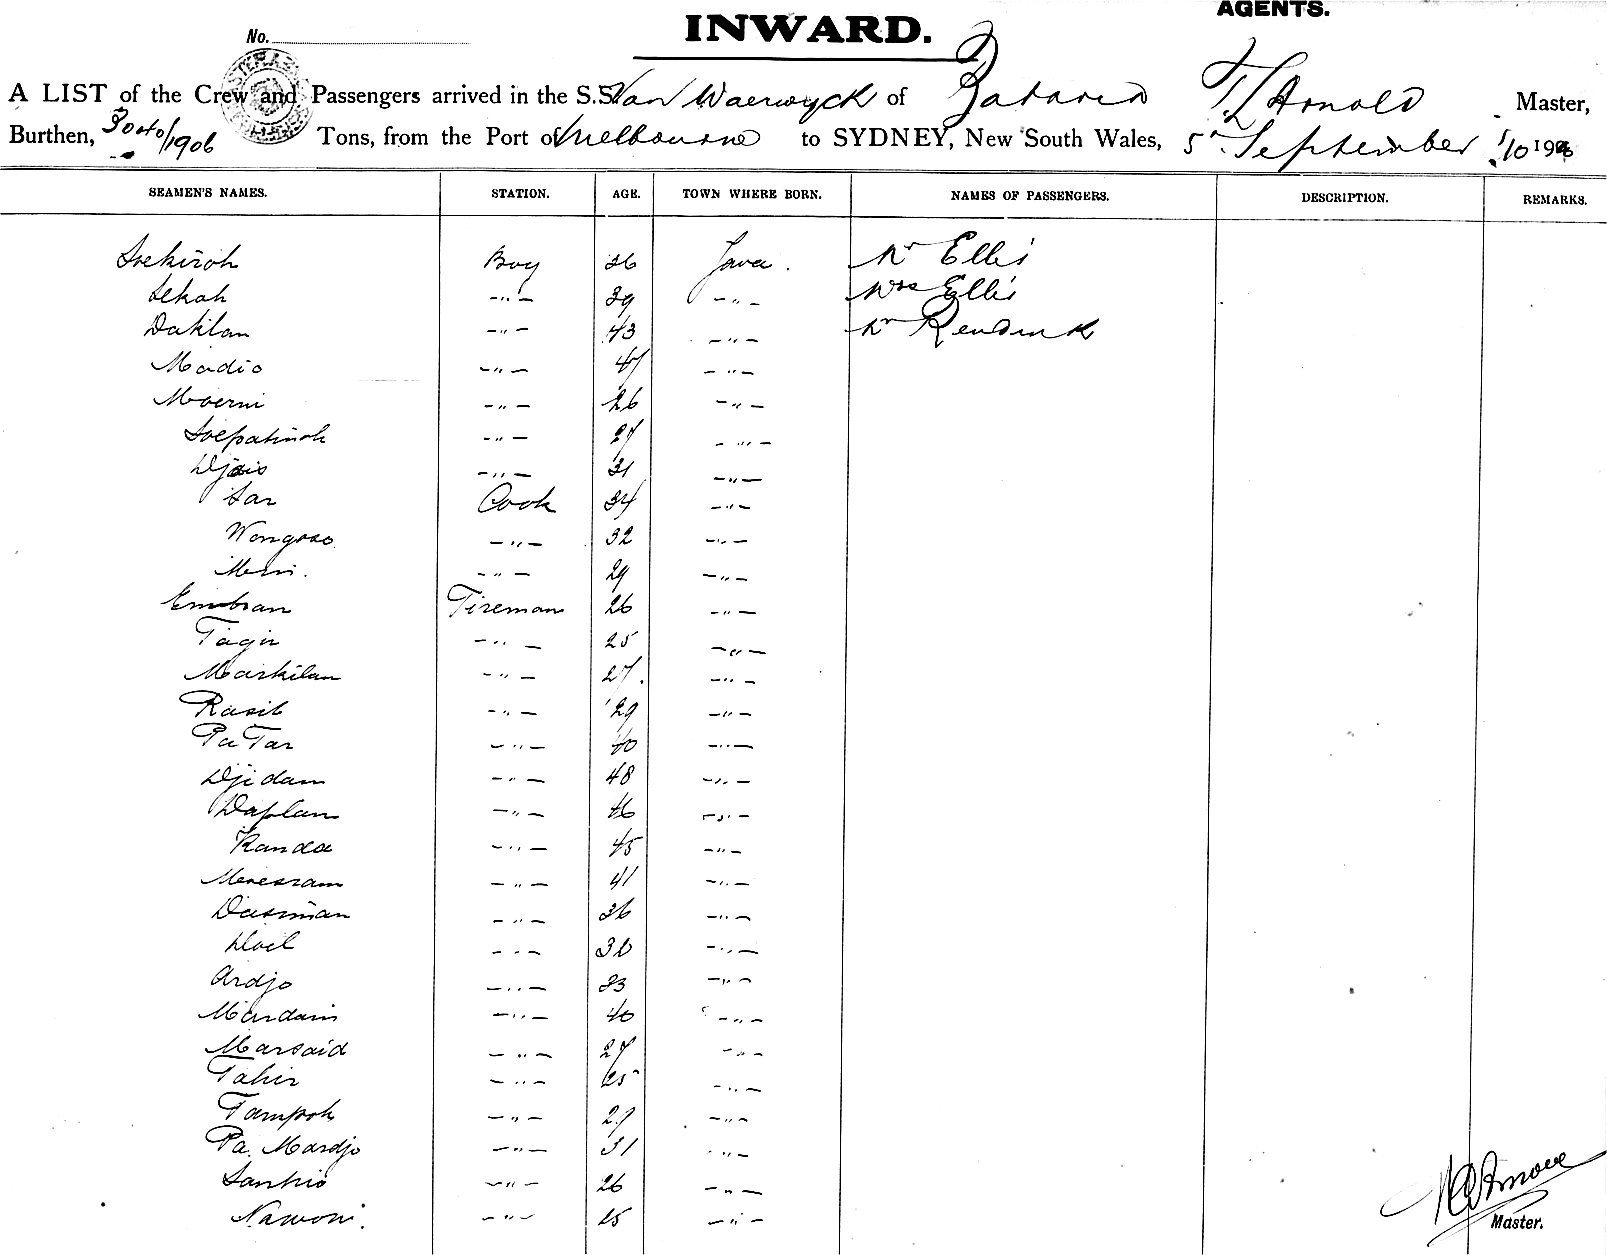 AGENTS.
INWARD.
No.
A LIST of the Crew and Passengers arrived in the S.S. Van Waerwyck of Batavia T. L. Arnold Master,
Burthen, 3040/1906 Tons, from the Port of Melbourne to SYDNEY, New South Wales, 5th September 1910
SEAMEN'S NAMES. STATION. AGE. TOWN WHERE BORN. NAMES OF PASSENGERS. DESCRIPTION. REMARKS.
Soekiroh Boy 36 Java. Mr Ellis
Sekah -"- 39 -"- Mrs Ellis
Daklan -"- 43 -"-
Madio -"- 41 -"-
Moerni -"- 26 -"-
Soepatinoh -"- 27 -"-
Djais -"- 31 -"-
Sar Cook 34 -"-
Wongso -"- 32 -"-
-"- 29 -"-
Embran Fireman 26 -"-
Tagir -"- 25 -"-
Markilan -"- 27. -"-
Rasib -"- 29 -"-
Pa Tar -"- 40 -"-
Djidam -"- 48 -"-
Daplan -"- 46 -"-
Randa -"- 45 -"-
-"- 41 -"-
Dasiman -"- 36 -"-
Doel -"- 30 -"-
Ardjo -"- 33 -"-
Mardain -"- 40 -"-
Marsaid -"- 27 -"-
Tahir -"- 25 -"-
Tampoh -"- 29 -"-
Pa. Mardjo -"- 31 -"-
Sankio -"- 26 -"-
Nawoni. -"- 25 -"-
Master.